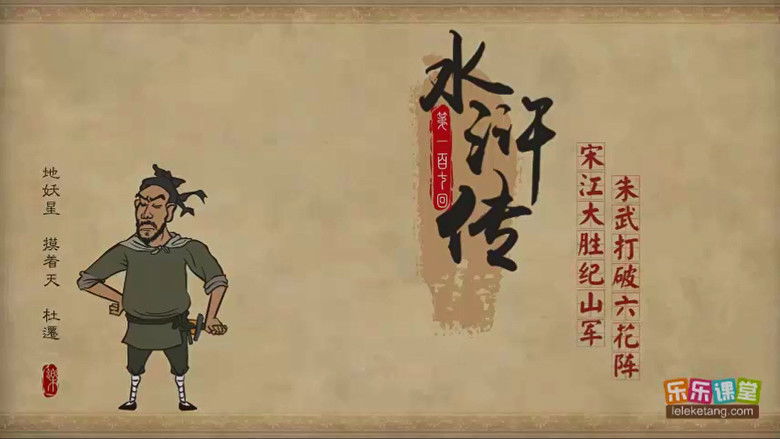 水浒传
第一百七回
宋江大胜纪山军
朱武打破六花阵
地妖星 摸着天 杜遷
乐乐课堂
leleketang.com